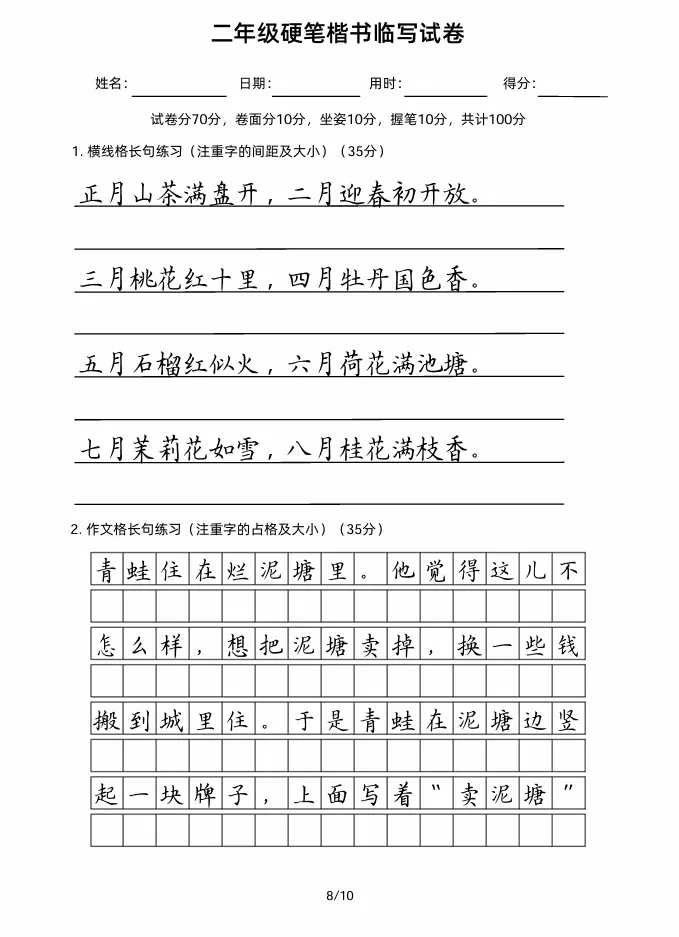 二年级硬笔楷书临写试卷
姓名： 日期： 用时： 得分：
试卷分70分，卷面分10分，坐姿10分，握笔10分，共计100分
1. 横线格长句练习（注重字的间距及大小）（35分）
正月山茶满盘开，二月迎春初开放。
三月桃花红十里，四月牡丹国色香。
五月石榴红似火，六月荷花满池塘。
七月茉莉花如雪，八月桂花满枝香。
2. 作文格长句练习（注重字的占格及大小）（35分）
青蛙住在烂泥塘里。他觉得这儿不
怎么样，想把泥塘卖掉，换一些钱
搬到城里住。于是青蛙在泥塘边竖
起一块牌子，上面写着“卖泥塘”
8/10